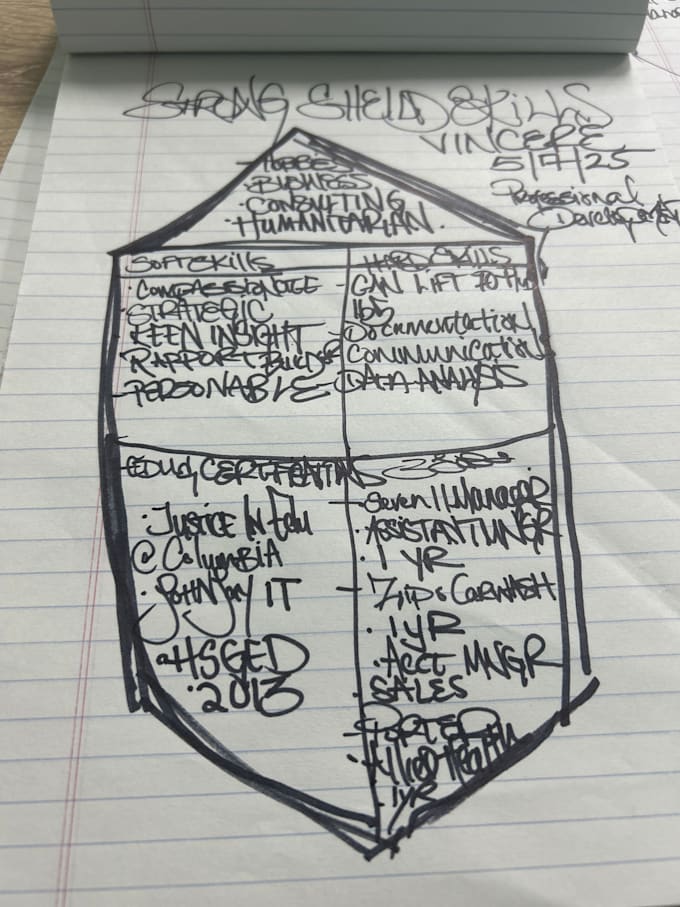 STRONG SHEILD SKILLS
VINCERE
5/7/25
Professional
HOBBIES
· BUSINESS
· CONSULTING
· HUMANITARIAN.
SOFT SKILLS
· COMPASSIONATE
· STRATEGIC
· KEEN INSIGHT
RAPPORT BUILDER
- PERSONABLE
HARD SKILLS
- CAN LIFT 70 Plus
lbs
- Documentation
Communication
- DATA ANALYSIS
EDUC, CERTIFICATIONS
· JUSTICE IN Edu
@ Columbia
· JOHN Jay IT
HSGED
· 2013
- Seven 11 Manager
· ASSISTANT MNGR
· 1 YR
- Zips CARWASH
· 1YR
· ACCT MNGR
- SALES
- PORTER
· Allied Health
· 1yR